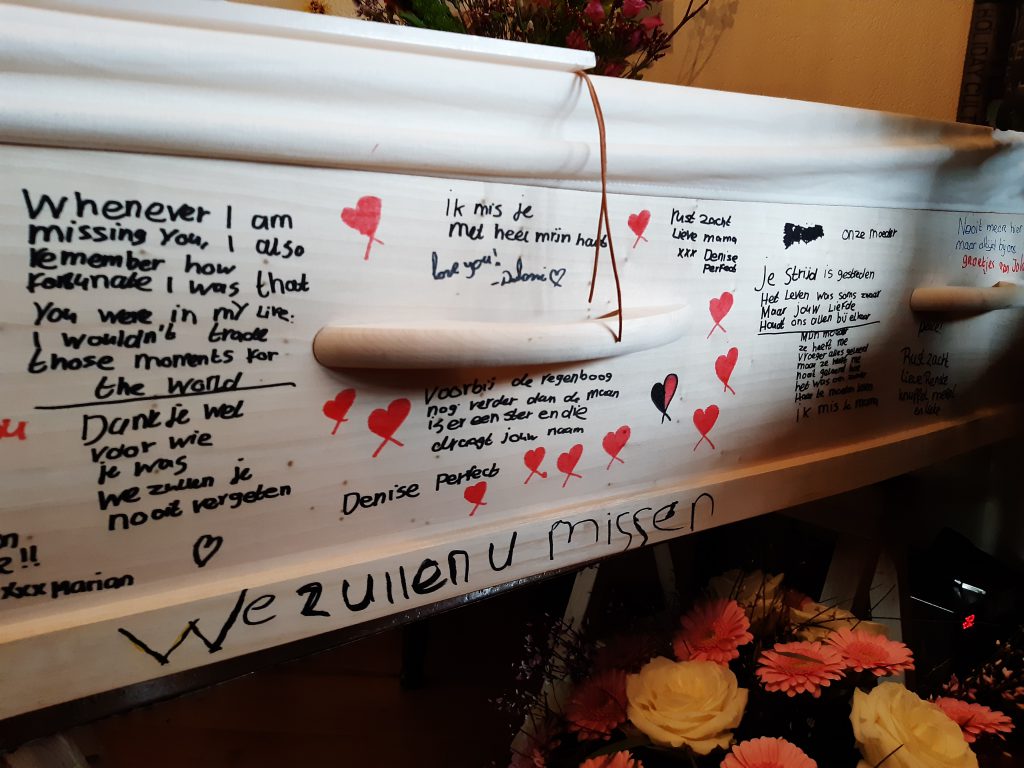 Whenever I am
missing you, I also
remember how
fortunate I was that
you were in my life.
I wouldn't trade
those moments for
the world
Dank je wel
voor wie
je was
we zullen je
nooit vergeten
xxx Marian
Ik mis je
met heel mijn hart
love you!
Voorbij de regenboog
nog verder dan de maan
is er een ster en die
draagt jouw naam
Denise Perfect
Rust zacht
Lieve mama
xxx Denise
Perfect
onze moeder
Je strijd is gestreden
Het leven was soms zwaar
Maar jouw liefde
Houdt ons allen bij elkaar
Mijn moeder
ze heeft me
vroeger alles geleerd
maar ze heeft me
nooit geleerd hoe
het was om zonder
Haar te moeten leven
ik mis je mama
Nooit meer hier
maar altijd bij ons
groetjes van
Rust zacht
Lieve
knuffel
We zullen u missen
HOLIDAY